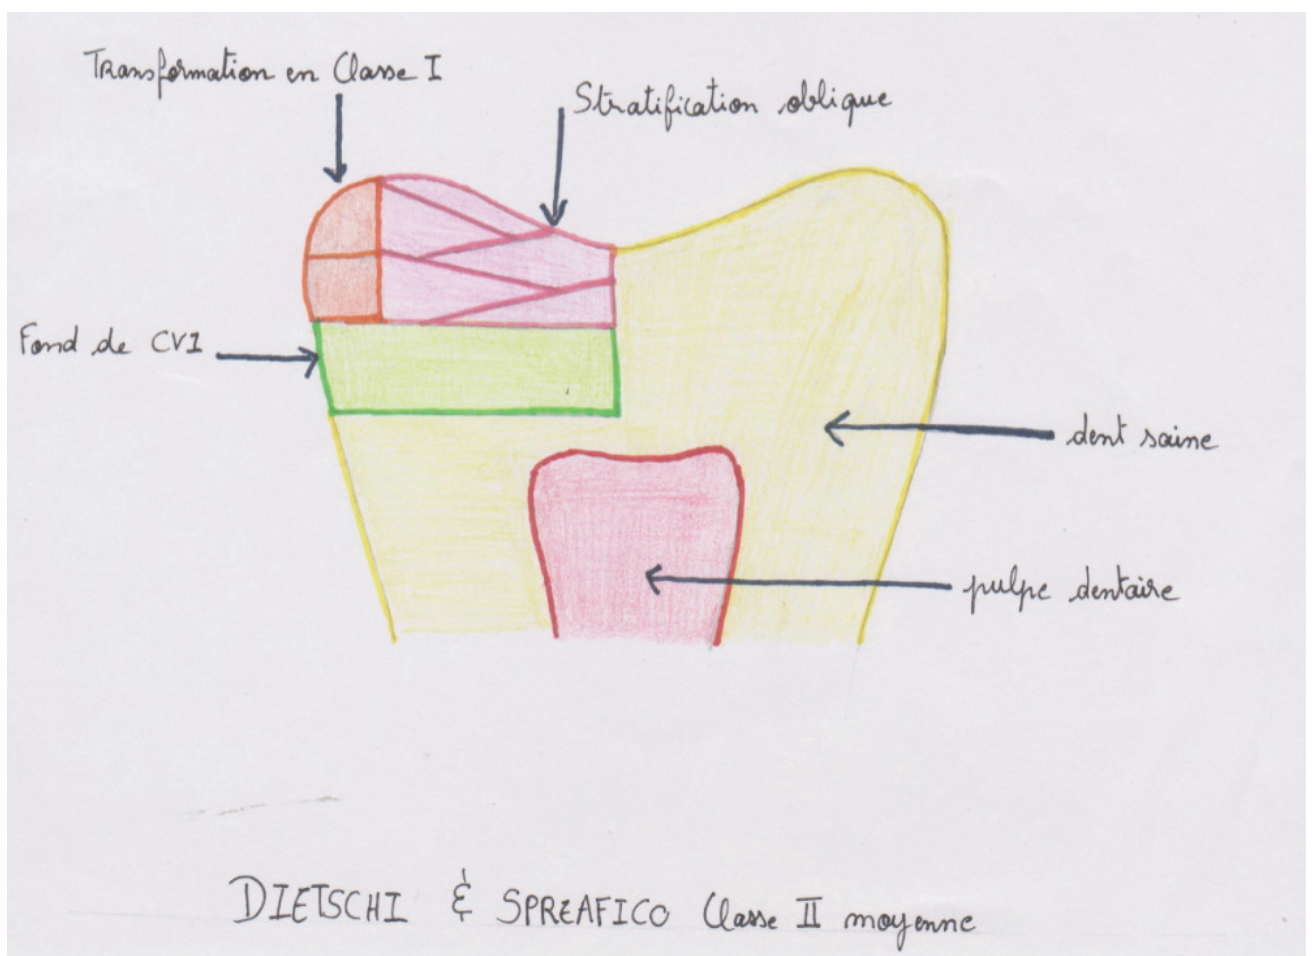 Transformation en Classe I
Stratification oblique
Fond de CVI
dent saine
pulpe dentaire
DIETSCHI & SPREAFICO Classe II moyenne